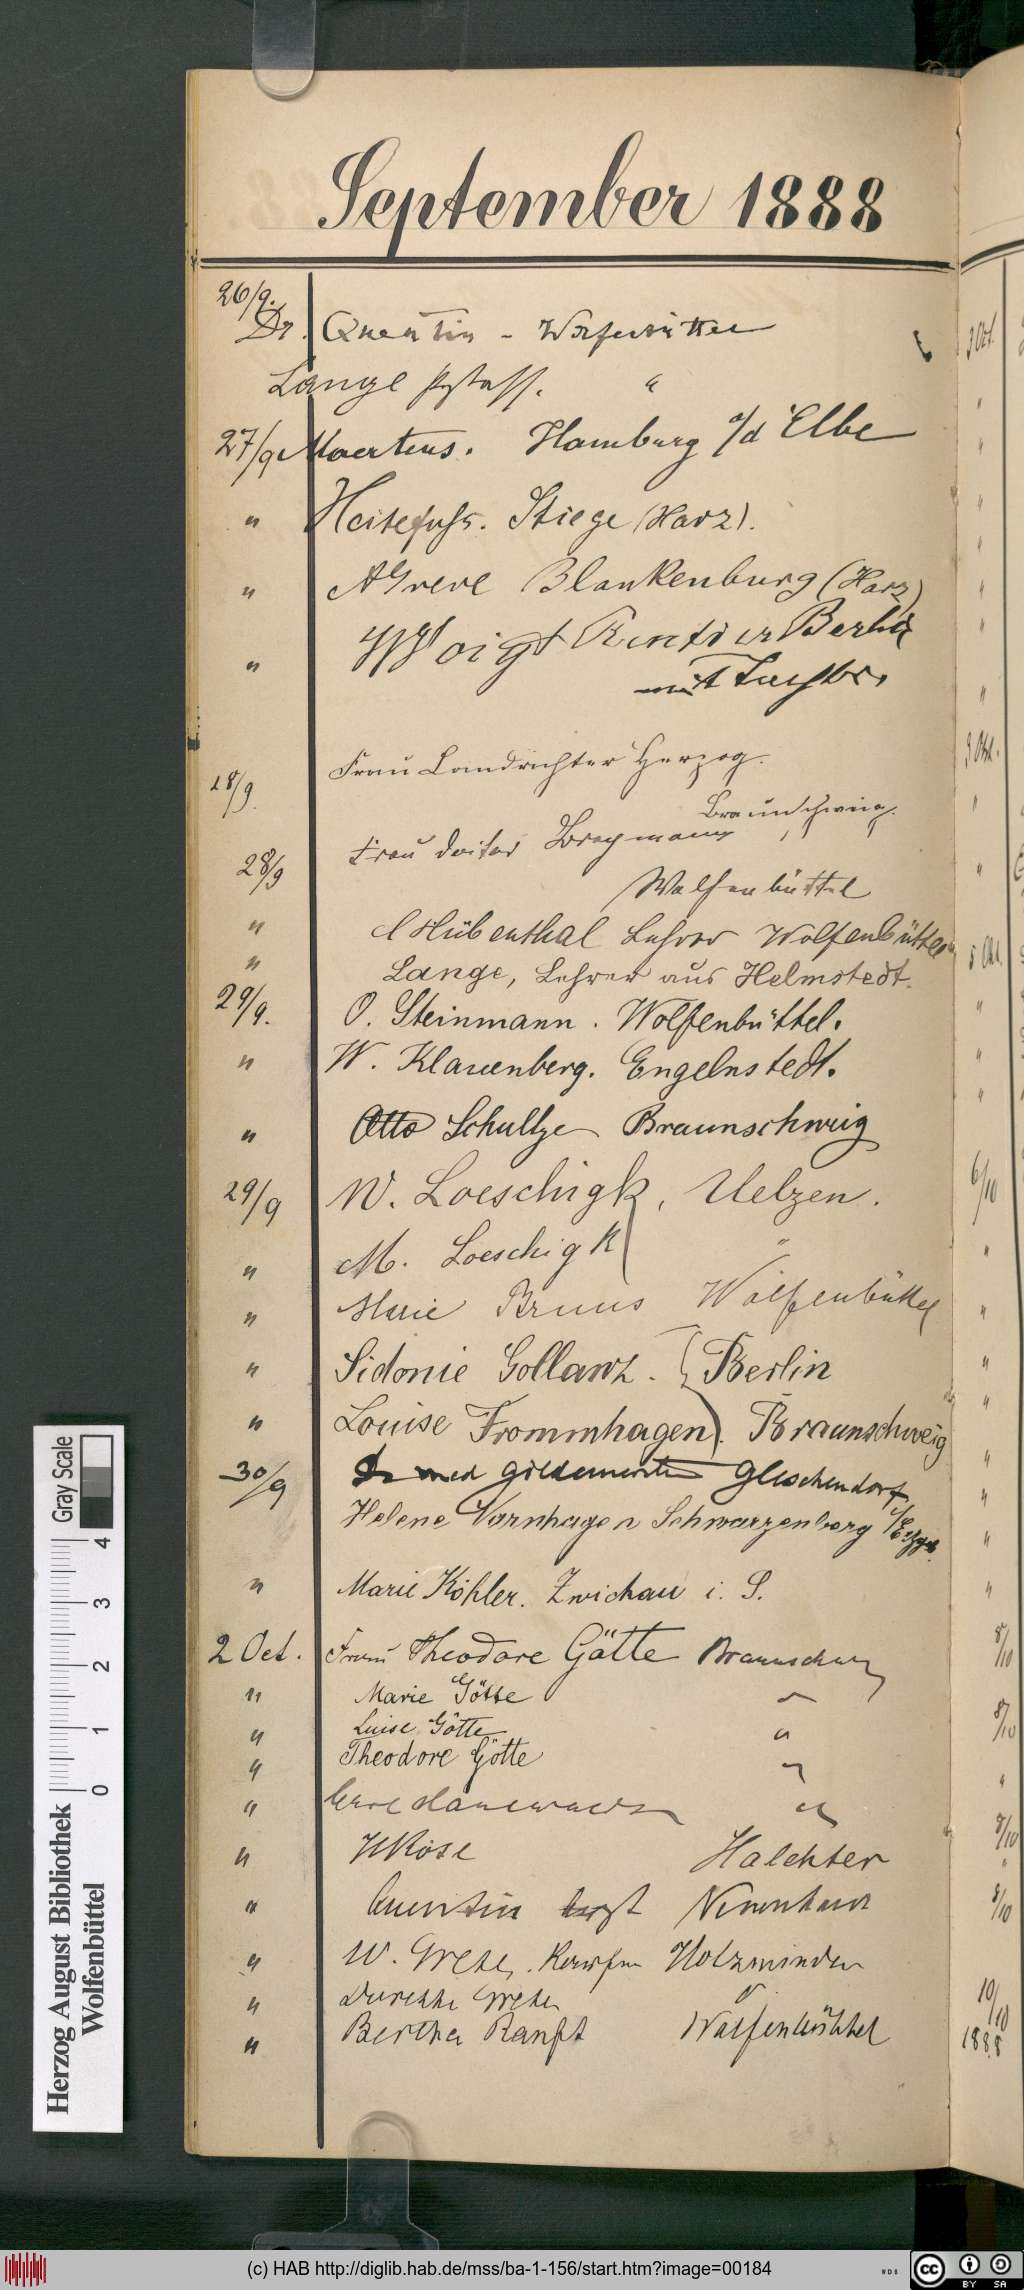 September 1888
26/9.
Dr. Quentin - Wolfenbüttel
Lange "
27/9 Maertens. Hamburg a/d Elbe
" Heitefuss. Stiege (Harz).
" A Greve Blankenburg (Harz)
" W Voigt Rentier Berlin
mit Tochter.
28/9. Frau Landrichter Herzog.
Braunschweig.
28/9 Frau Doctor
Wolfenbüttel
" Hübenthal Lehrer Wolfenbüttel
" Lange, Lehrer aus Helmstedt.
29/9. O. Steinmann. Wolfenbüttel.
" W. Klauenberg. Engelnstedt.
" Otto Schultze Braunschweig
29/9 W. Loeschigk, Uelzen.
" M. Loeschigk "
" Marie Bruns Wolfenbüttel
" Sidonie Gollanz. Berlin
" Louise Frommhagen. Braunschweig
30/9 Dr med Gildemeister Gleschendorf
Helene Varnhagen Schwarzenberg i/Erzgeb.
" Marie Köhler. Zwickau i. S.
2 Oct. Frau Theodore Götte Braunschweig
" Marie Götte "
" Luise Götte "
" Theodore Götte "
" Carl "
" H Rose Halchter
" Quentin
" W. Grete, Holzminden
" Grete "
" Bertha Ranft Wolfenbüttel
3 Okt.
5 Okt.
6/10
8/10
8/10
8/10
8/10
10/10
1888
Gray Scale
0 1 2 3 4
Herzog August Bibliothek
Wolfenbüttel
(c) HAB http://diglib.hab.de/mss/ba-1-156/start.htm?image=00184
WDB
cc BY SA